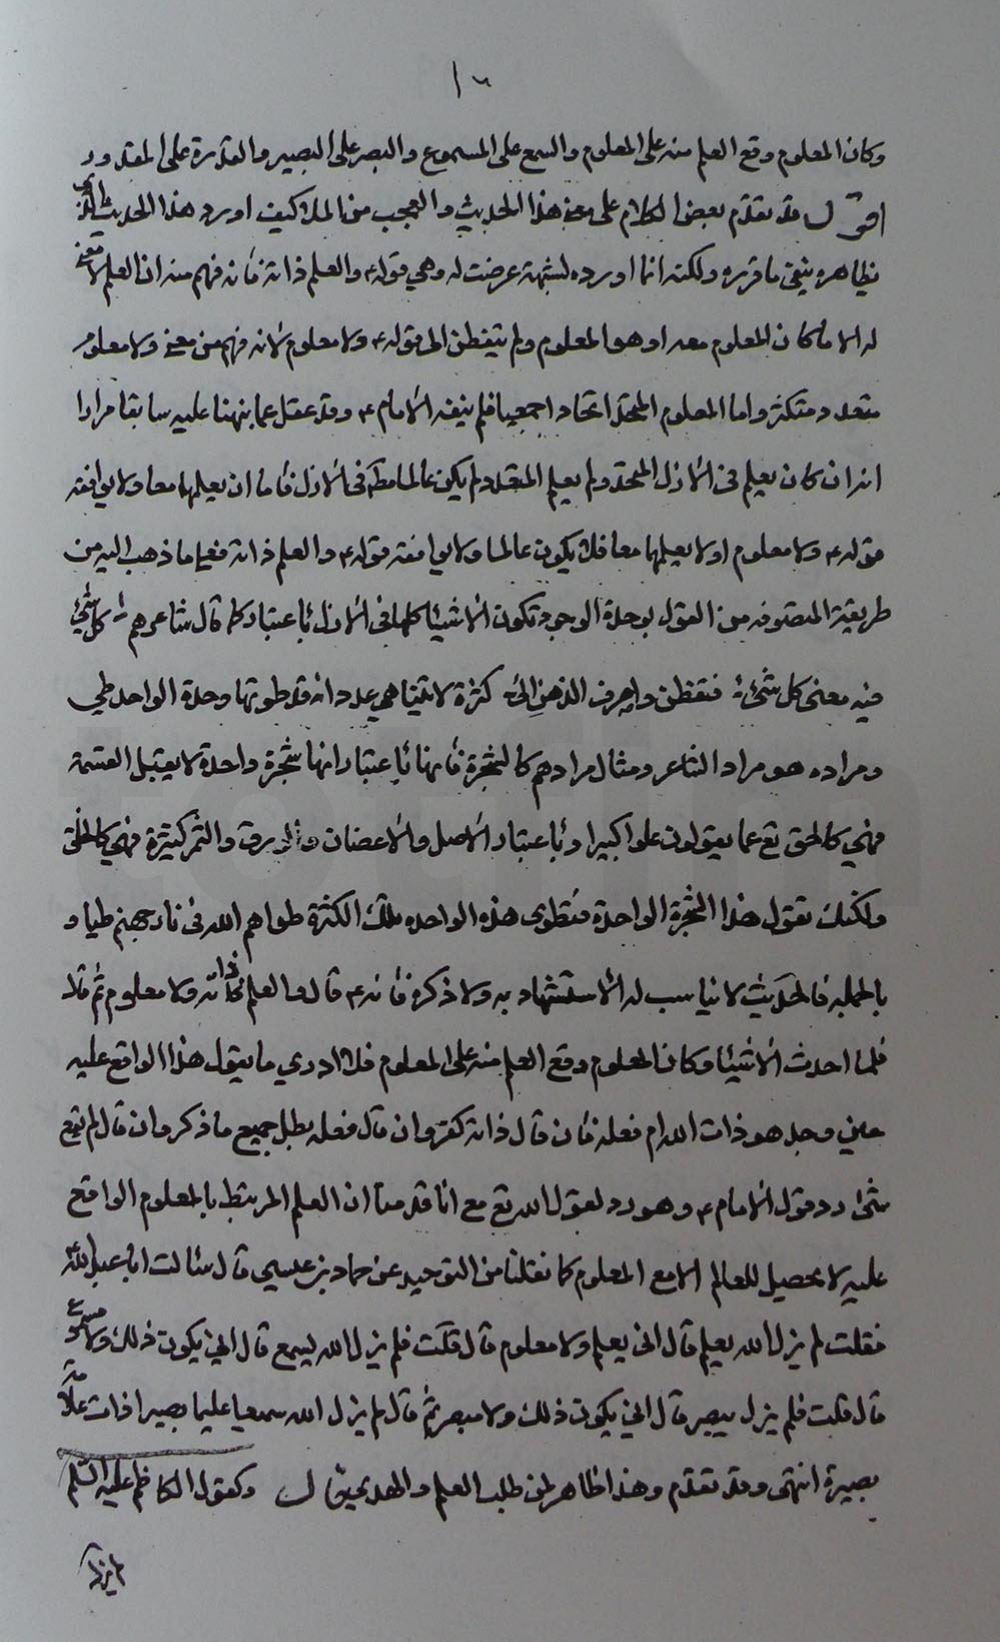 ١٦
وكان المعلوم وقع العلم منه على المعلوم والسمع على المسموع والبصر على البصير والقدرة على المقدور
اقول قد تقدم بعض الكلام على معنى هذا الحديث والعجب من الملا كيف اورد هذا الحديث الذي
بظاهره ينفي ما قرره ولكنه انما اورده لشبهة عرضت له وهي قوله ۴ والعلم ذاته فانه فهم منه ان العلم لا معنى
له الا ما كان المعلوم معه او هو المعلوم ولم يتفطن الى قوله ۴ ولا معلوم لانه فهم من معنى ولا معلوم
متعدد متكثر واما المعلوم المتحد اتحادا جمعيا فلم ينفه الامام ۴ وقد غفل عما نبهنا عليه سابقا مرارا
انه ان كان يعلم في الازل المتحد ولم يعلم المتعدد لم يكن عالما مط في الازل فاما ان يعلمها معا ولا يوافقه
قوله ۴ ولا معلوم او لا يعلمها معا فلا يكون عالما ولا يوافقه قوله ۴ والعلم ذاته فعلى ما ذهب اليه من
طريقة المتصوفه من القول بوحدة الوجود تكون الاشيئا كلها في الازل باعتبار كما قال شاعرهم كل شئ
فيه معنى كل شئ فتفطن واصرف الذهن الى كثرة لا تتناهى عددا قد طوتها وحدة الواحد طي
ومراده هو مراد الشاعر ومثال مرادهم كالشجرة فانها باعتبار انها شجرة واحدة لا يقبل القسمة
فهي كالحق تع عما يقولون علوا كبيرا وباعتبار الاصل والاغصان والورق والثمر كثيرة فهي كالخلق
ولكنك تقول هذا الشجرة الواحدة فتطوى هذه الواحده تلك الكثرة طواهم الله في نار جهنم طيا و
بالجمله فالحديث لا يناسب له الاستشهاد به ولا ذكره فانه ۴ قال والعلم ذاته ولا معلوم ثم قال
فلما احدث الاشيئا وكان المعلوم وقع العلم منه على المعلوم فلا ادري ما يقول هذا الواقع عليه
حين وجد هو ذات الله ام فعله فان قال ذاته كفر وان قال فعله بطل جميع ما ذكر وان قال لم يقع
شئ رد قول الامام ۴ وهو رد لقول الله تع مع انا قدمنا ان العلم المرتبط بالمعلوم الواقع
عليه لا تحصيل للعالم الا مع المعلوم كما نقلنا من التوحيد عن حماد بن عيسى قال سئالت ابا عبد الله ۴
فقلت لم يزل الله يعلم قال انى يعلم ولا معلوم قال قلت فلم يزل الله يسمع قال انى يكون ذلك ولا مسموع
قال قلت فلم يزل يبصر قال انى يكون ذلك ولا مبصر ثم قال لم يزل الله سميعا عليما بصيرا ذات علامة
بصيرة انتهى وقد تقدم وهذا ظاهر لمن طلب العلم والهدى قال وكقول الكاظم عليه السلم